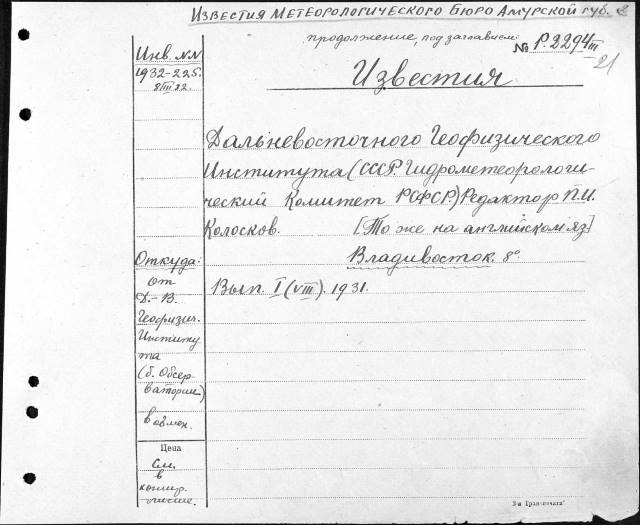 Известия Метеорологического Бюро Амурской губ. 2
продолжение, под заглавием:
№ Р.2294/III
21
Известия
Инв. №№
1932-225.
8/III 22.
Дальневосточного Геофизического
Института (СССР. Гидрометеорологи-
ческий Комитет РСФСР.) Редактор П.И.
Колосков. [То же на английском яз]
Владивосток. 8°
Вып. I (VIII). 1931.
Откуда:
От
Д.-В.
Геофизич.
Институ
та
(б. Обсер-
ватории)
в обмен.
Цена
См.
в